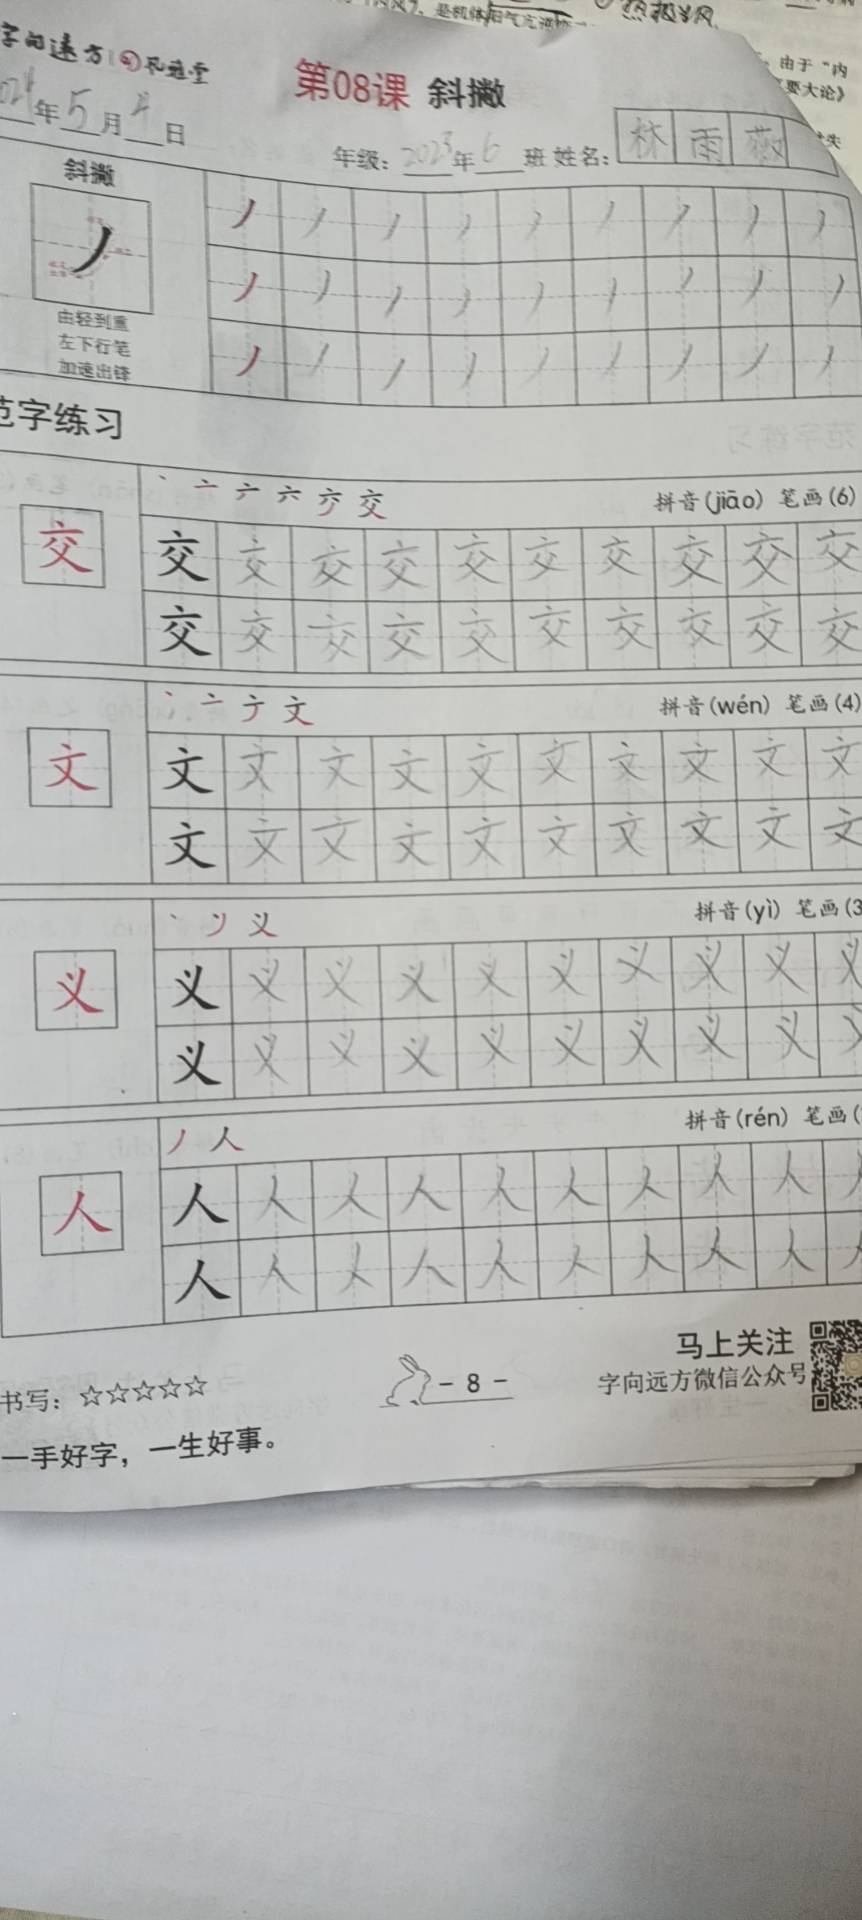 是机体阳气亢
热极生风
由于“内
要大论》
失
字向远方
第08课 斜撇
年5月4日
年级：2023年6班 姓名：林雨薇
斜撇
由轻到重
左下行笔
加速出锋
范字练习
丶 亠 六 交 拼音(jiāo) 笔画(6)
交 交 交 交 交 交 交 交 交 交 交
交 交 交 交 交 交 交 交 交 交
丶 亠 文 拼音(wén) 笔画(4)
文 文 文 文 文 文 文 文 文 文 文
文 文 文 文 文 文 文 文 文 文
丶 义 拼音(yì) 笔画(3
义 义 义 义 义 义 义 义 义 义 义
义 义 义 义 义 义 义 义 义 义
丿 人 拼音(rén) 笔画(
人 人 人 人 人 人 人 人 人 人
人 人 人 人 人 人 人 人 人
马上关注
书写：☆☆☆☆☆ - 8 - 字向远方微信公众号
一手好字，一生好事。